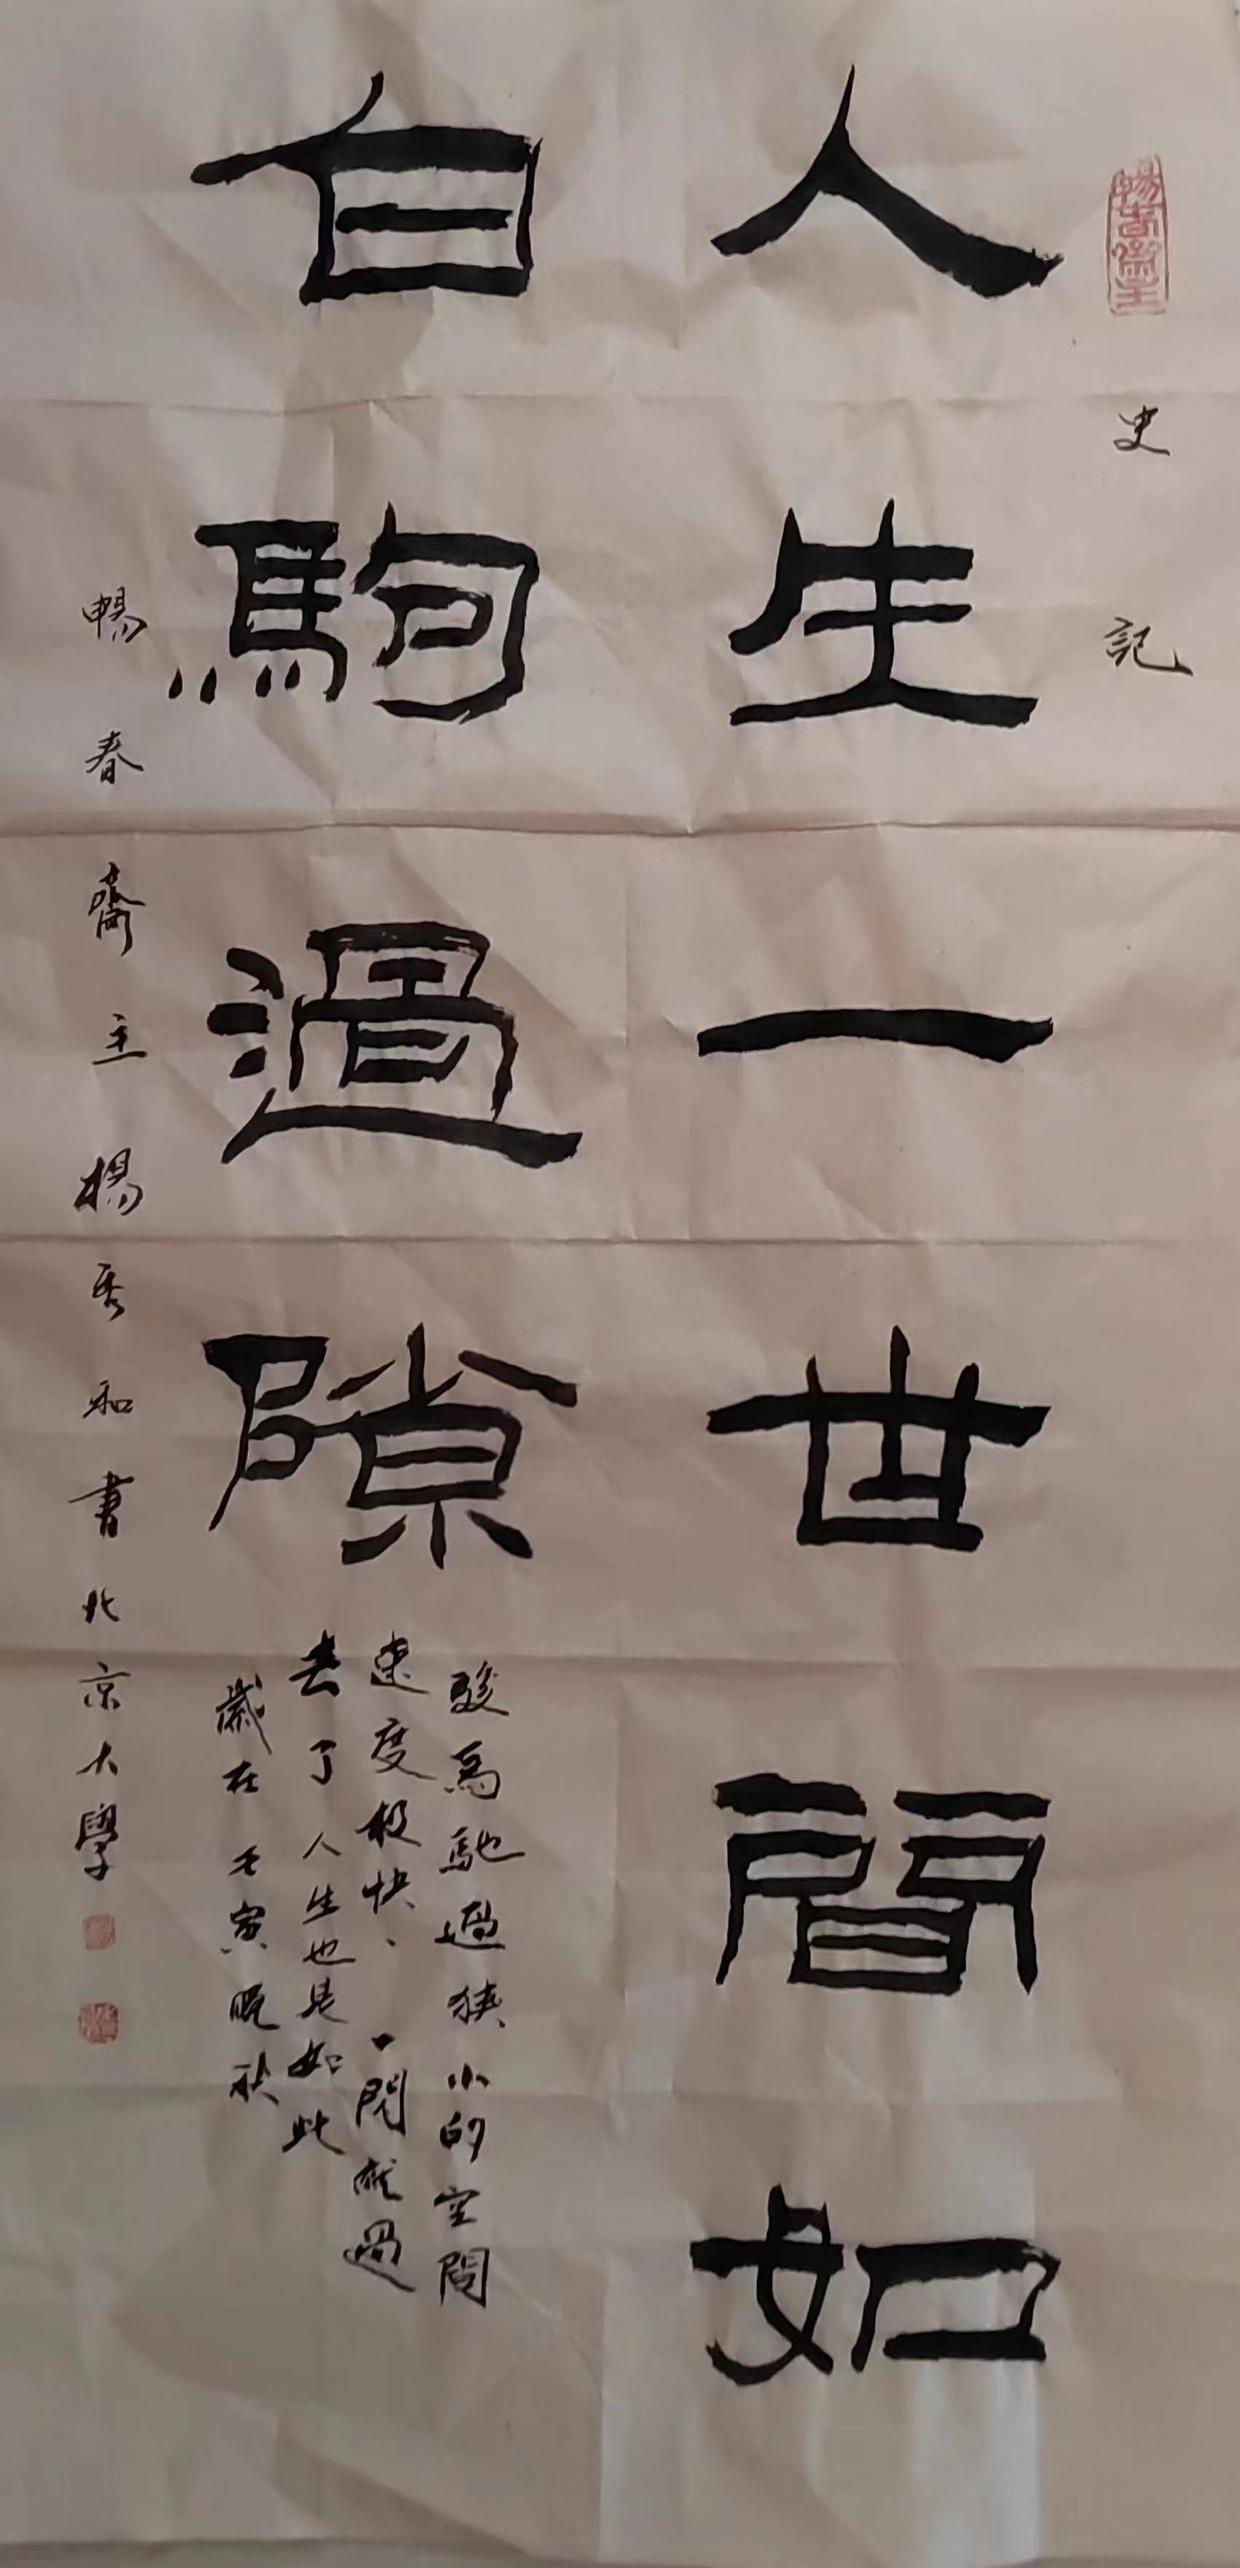 暢春齋主
史記
人生一世間如
白駒過隙
駿馬馳過狹小的空間
速度极快、一閃就過
去了人生也是如此
歲在壬寅晚秋
暢春齋主楊秀和書北京大學